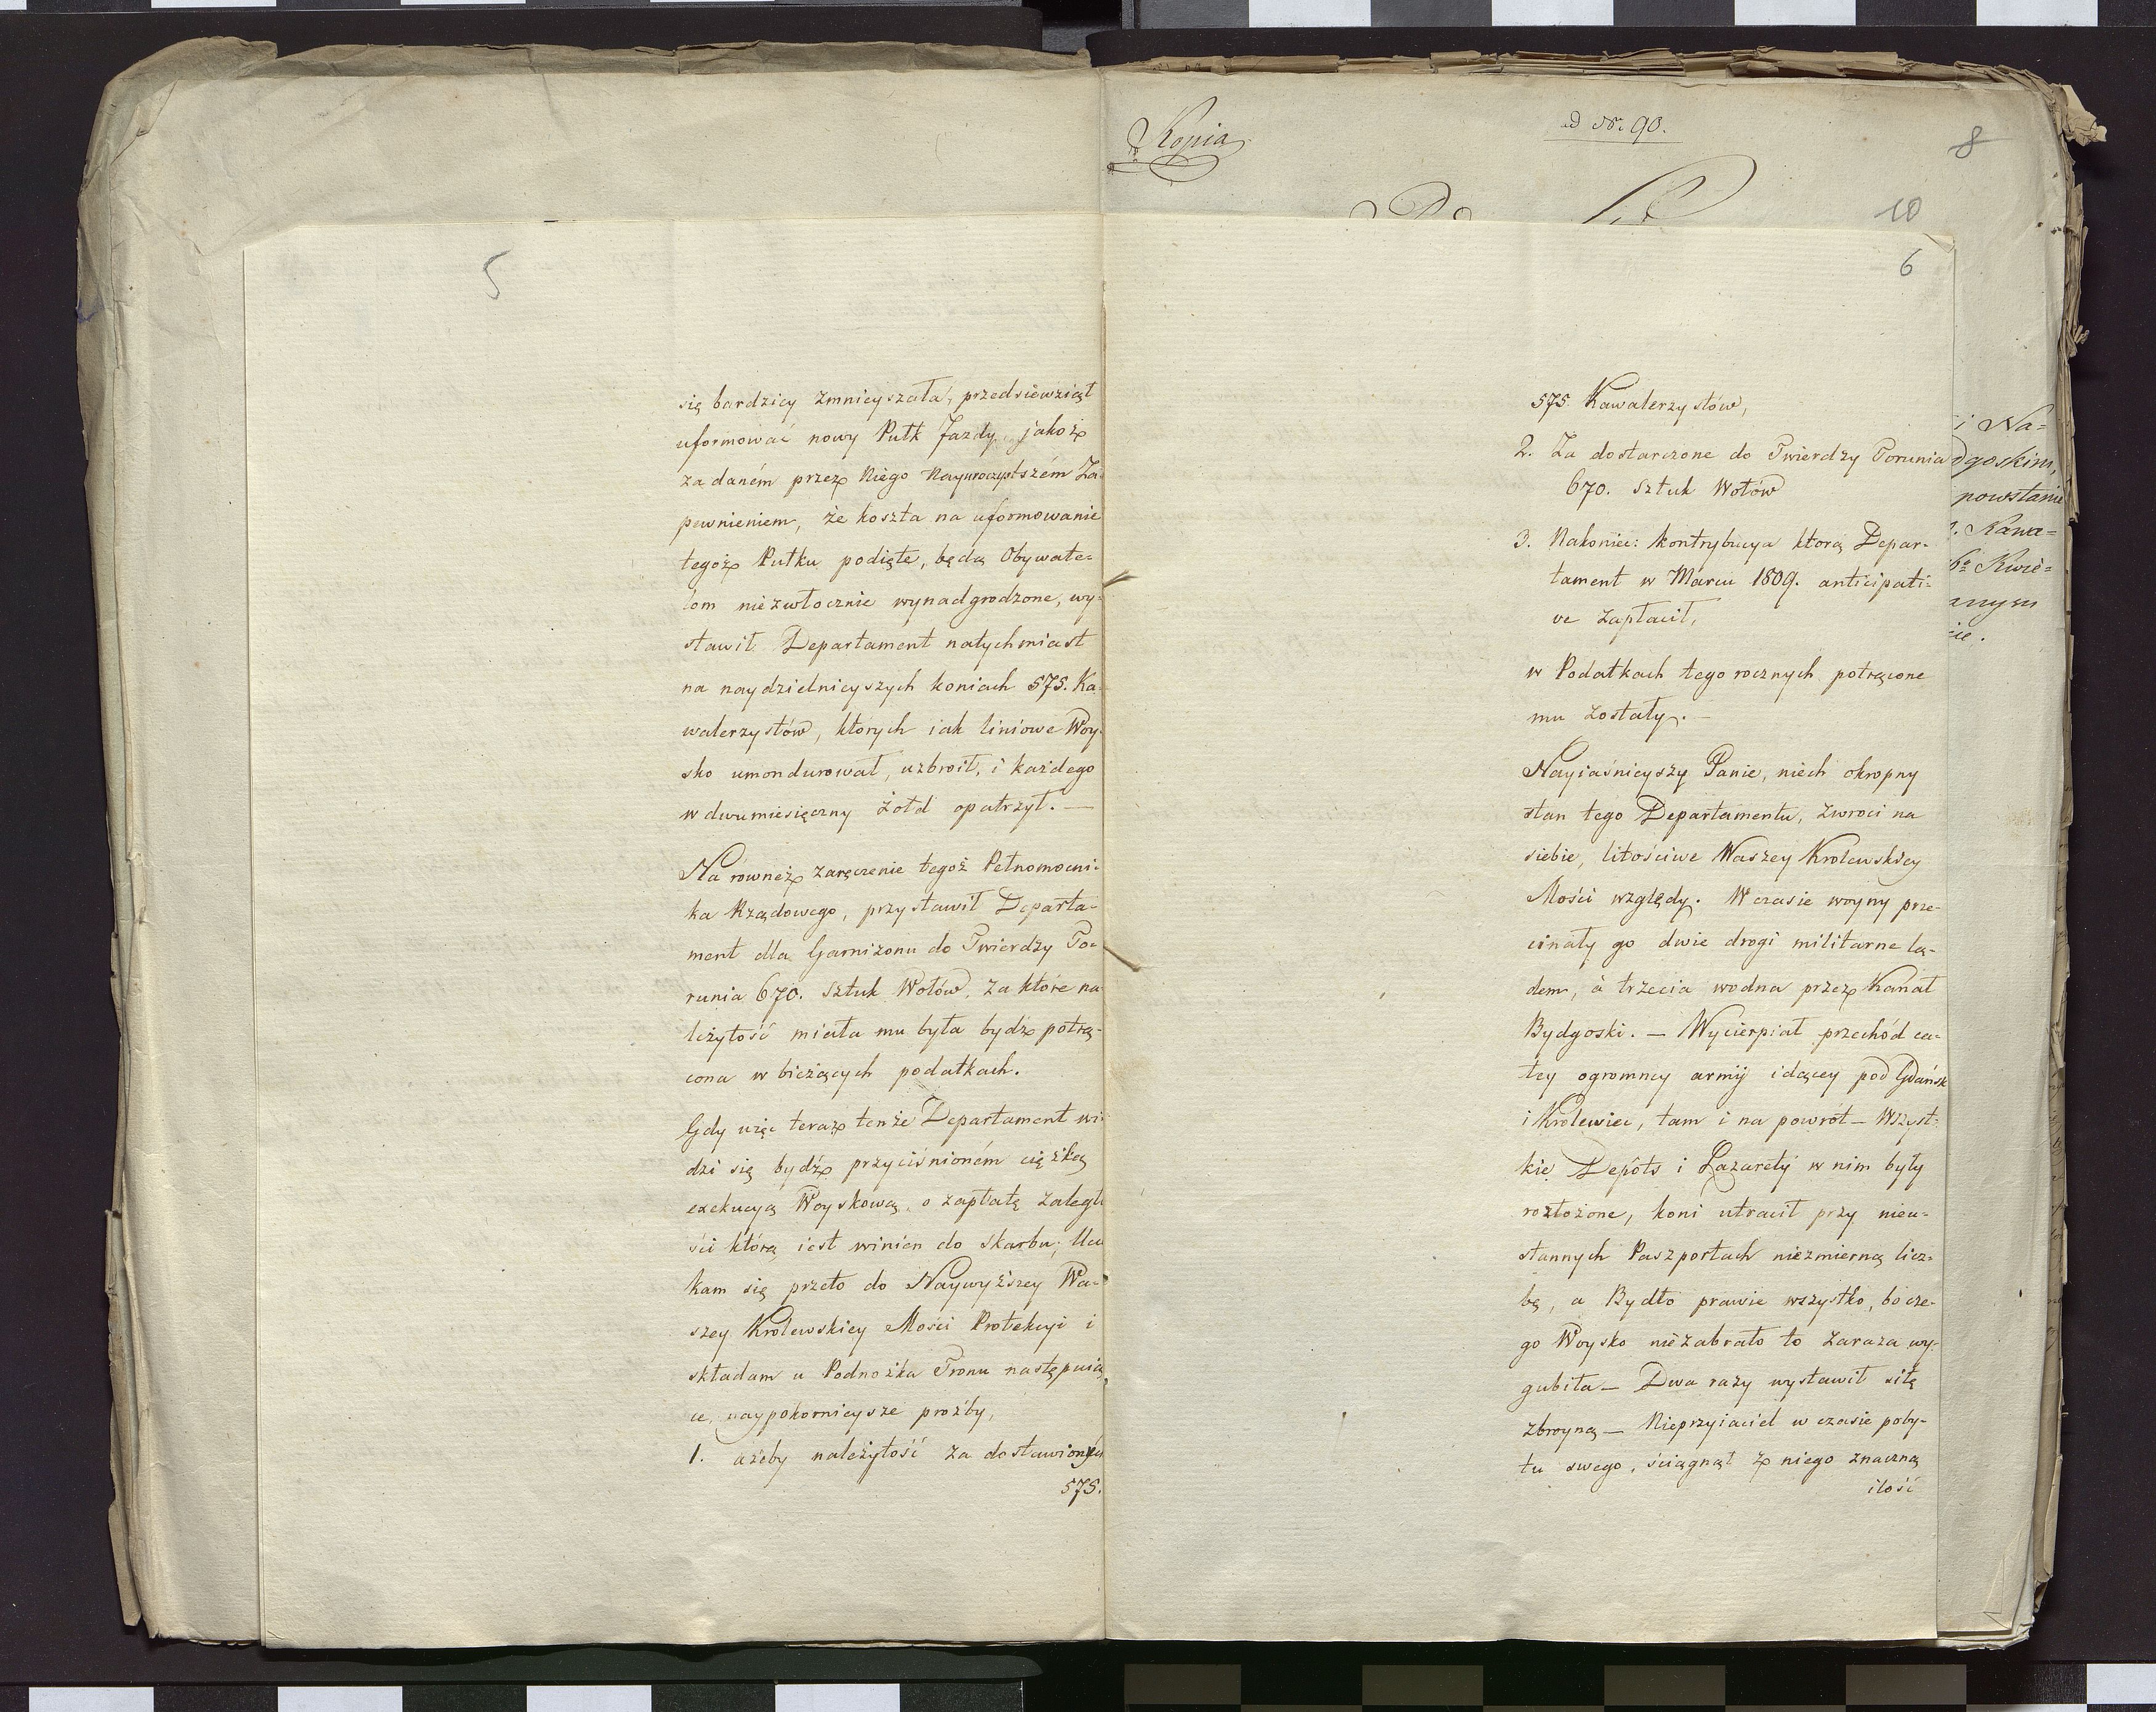 5
się bardziey zmnieyszała, przedsiewziął
uformować nowy Pułk Jazdy, jakoż
za daném przez Niego Nayuroczystszém Za-
pewnieniem, że koszta na uformowanie
tegoż Pułku podięte, będą Obywate-
lom niezwłocznie wynadgrodzone, wy-
stawił Departament natychmiast
na naydzielnieyszych koniach 575. Ka-
walerzystów, których iak liniowe Woy-
sko umondurował, uzbroił, i każdego
w dwumiesięczny żołd opatrzył. —
Na rownez zaręczenie tegoż Pełnomocni-
ka Rządowego, przystawił Departa-
ment dla Garnizonu do Twierdzy To-
runia 670. sztuk Wołów, za które na
leżytość miała mu była bydz potrą-
cona w bieżących podatkach.
Gdy więc teraz tenże Departament wi-
dzi się bydź przyciśnioném ciężką
exekucyą Woyskową, o zapłatę zaległo
ści którą iest winien do skarbu; Ucie
kam się przeto do Naywyższey Wa-
szey Krolewskiey Mości Protekcyi i
składam u Podnożka Tronu następuią
ce, naypokornieysze prożby,
1. ażeby należytość za dostawionych
575.
Kopia
ad Nr. 90.
8
10
6
575 Kawalerzystów,
2. Za dostarczone do Twierdzy Torunia
670. sztuk Wołów
3. Nakoniec: kontrybucya ktorą Depar-
tament w Marcu 1809. anticipati-
ve zapłacił,
w Podatkach tegorocznych potrącone
mu zostały. —
Nayiaśnieyszy Panie, niech okropny
stan tego Departamentu, zwroci na
siebie, litościwe Waszey Krolewskiey
Mości względy. W czasie woyny prze-
cinały go dwie drogi militarne lą-
dem, à trzecia wodna przez Kanał
Bydgoski. — Wycierpiał przechód ca-
łey ogromney armij idącey pod Gdańsk
i Krolewiec, tam i na powrót — Wszyst-
kie Depôts i Lazarety w nim były
rozłożone, koni utracił przy nieu-
stannych Paszportach niezmierną licz-
bę, a Bydło prawie wszystko, bo cze-
go Woysko niezabrało to zaraza wy-
gubiła — Dwa razy wystawił siłę
zbroyną — Nieprzyiaciel w czasie poby-
tu swego, ściągnął z niego znaczną
ilość
i Na-
dgoskim,
powstanie
Kawa-
6o Kwie-
anym
cie.